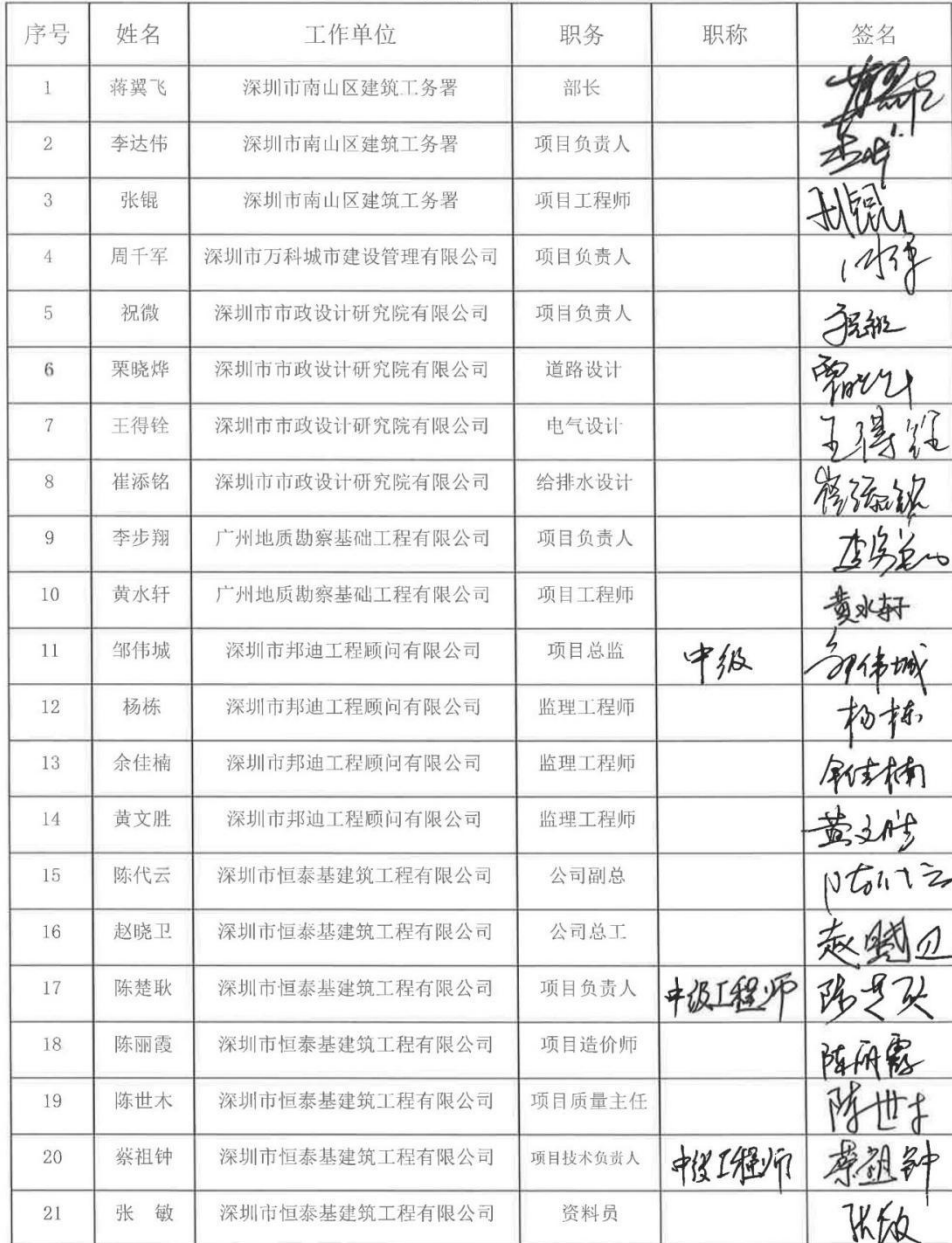 序号 姓名 工作单位 职务 职称 签名
1 蒋翼飞 深圳市南山区建筑工务署 部长
2 李达伟 深圳市南山区建筑工务署 项目负责人
3 张锟 深圳市南山区建筑工务署 项目工程师
4 周千军 深圳市万科城市建设管理有限公司 项目负责人
5 祝微 深圳市市政设计研究院有限公司 项目负责人
6 栗晓烨 深圳市市政设计研究院有限公司 道路设计
7 王得铨 深圳市市政设计研究院有限公司 电气设计 王得铨
8 崔添铭 深圳市市政设计研究院有限公司 给排水设计 崔添铭
9 李步翔 广州地质勘察基础工程有限公司 项目负责人
10 黄水轩 广州地质勘察基础工程有限公司 项目工程师 黄水轩
11 邹伟城 深圳市邦迪工程顾问有限公司 项目总监 中级 邹伟城
12 杨栋 深圳市邦迪工程顾问有限公司 监理工程师 杨栋
13 余佳楠 深圳市邦迪工程顾问有限公司 监理工程师 余佳楠
14 黄文胜 深圳市邦迪工程顾问有限公司 监理工程师 黄文胜
15 陈代云 深圳市恒泰基建筑工程有限公司 公司副总 陈代云
16 赵晓卫 深圳市恒泰基建筑工程有限公司 公司总工 赵晓卫
17 陈楚耿 深圳市恒泰基建筑工程有限公司 项目负责人 中级工程师 陈楚耿
18 陈丽霞 深圳市恒泰基建筑工程有限公司 项目造价师 陈丽霞
19 陈世木 深圳市恒泰基建筑工程有限公司 项目质量主任 陈世木
20 蔡祖钟 深圳市恒泰基建筑工程有限公司 项目技术负责人 中级工程师 蔡祖钟
21 张 敏 深圳市恒泰基建筑工程有限公司 资料员 张敏